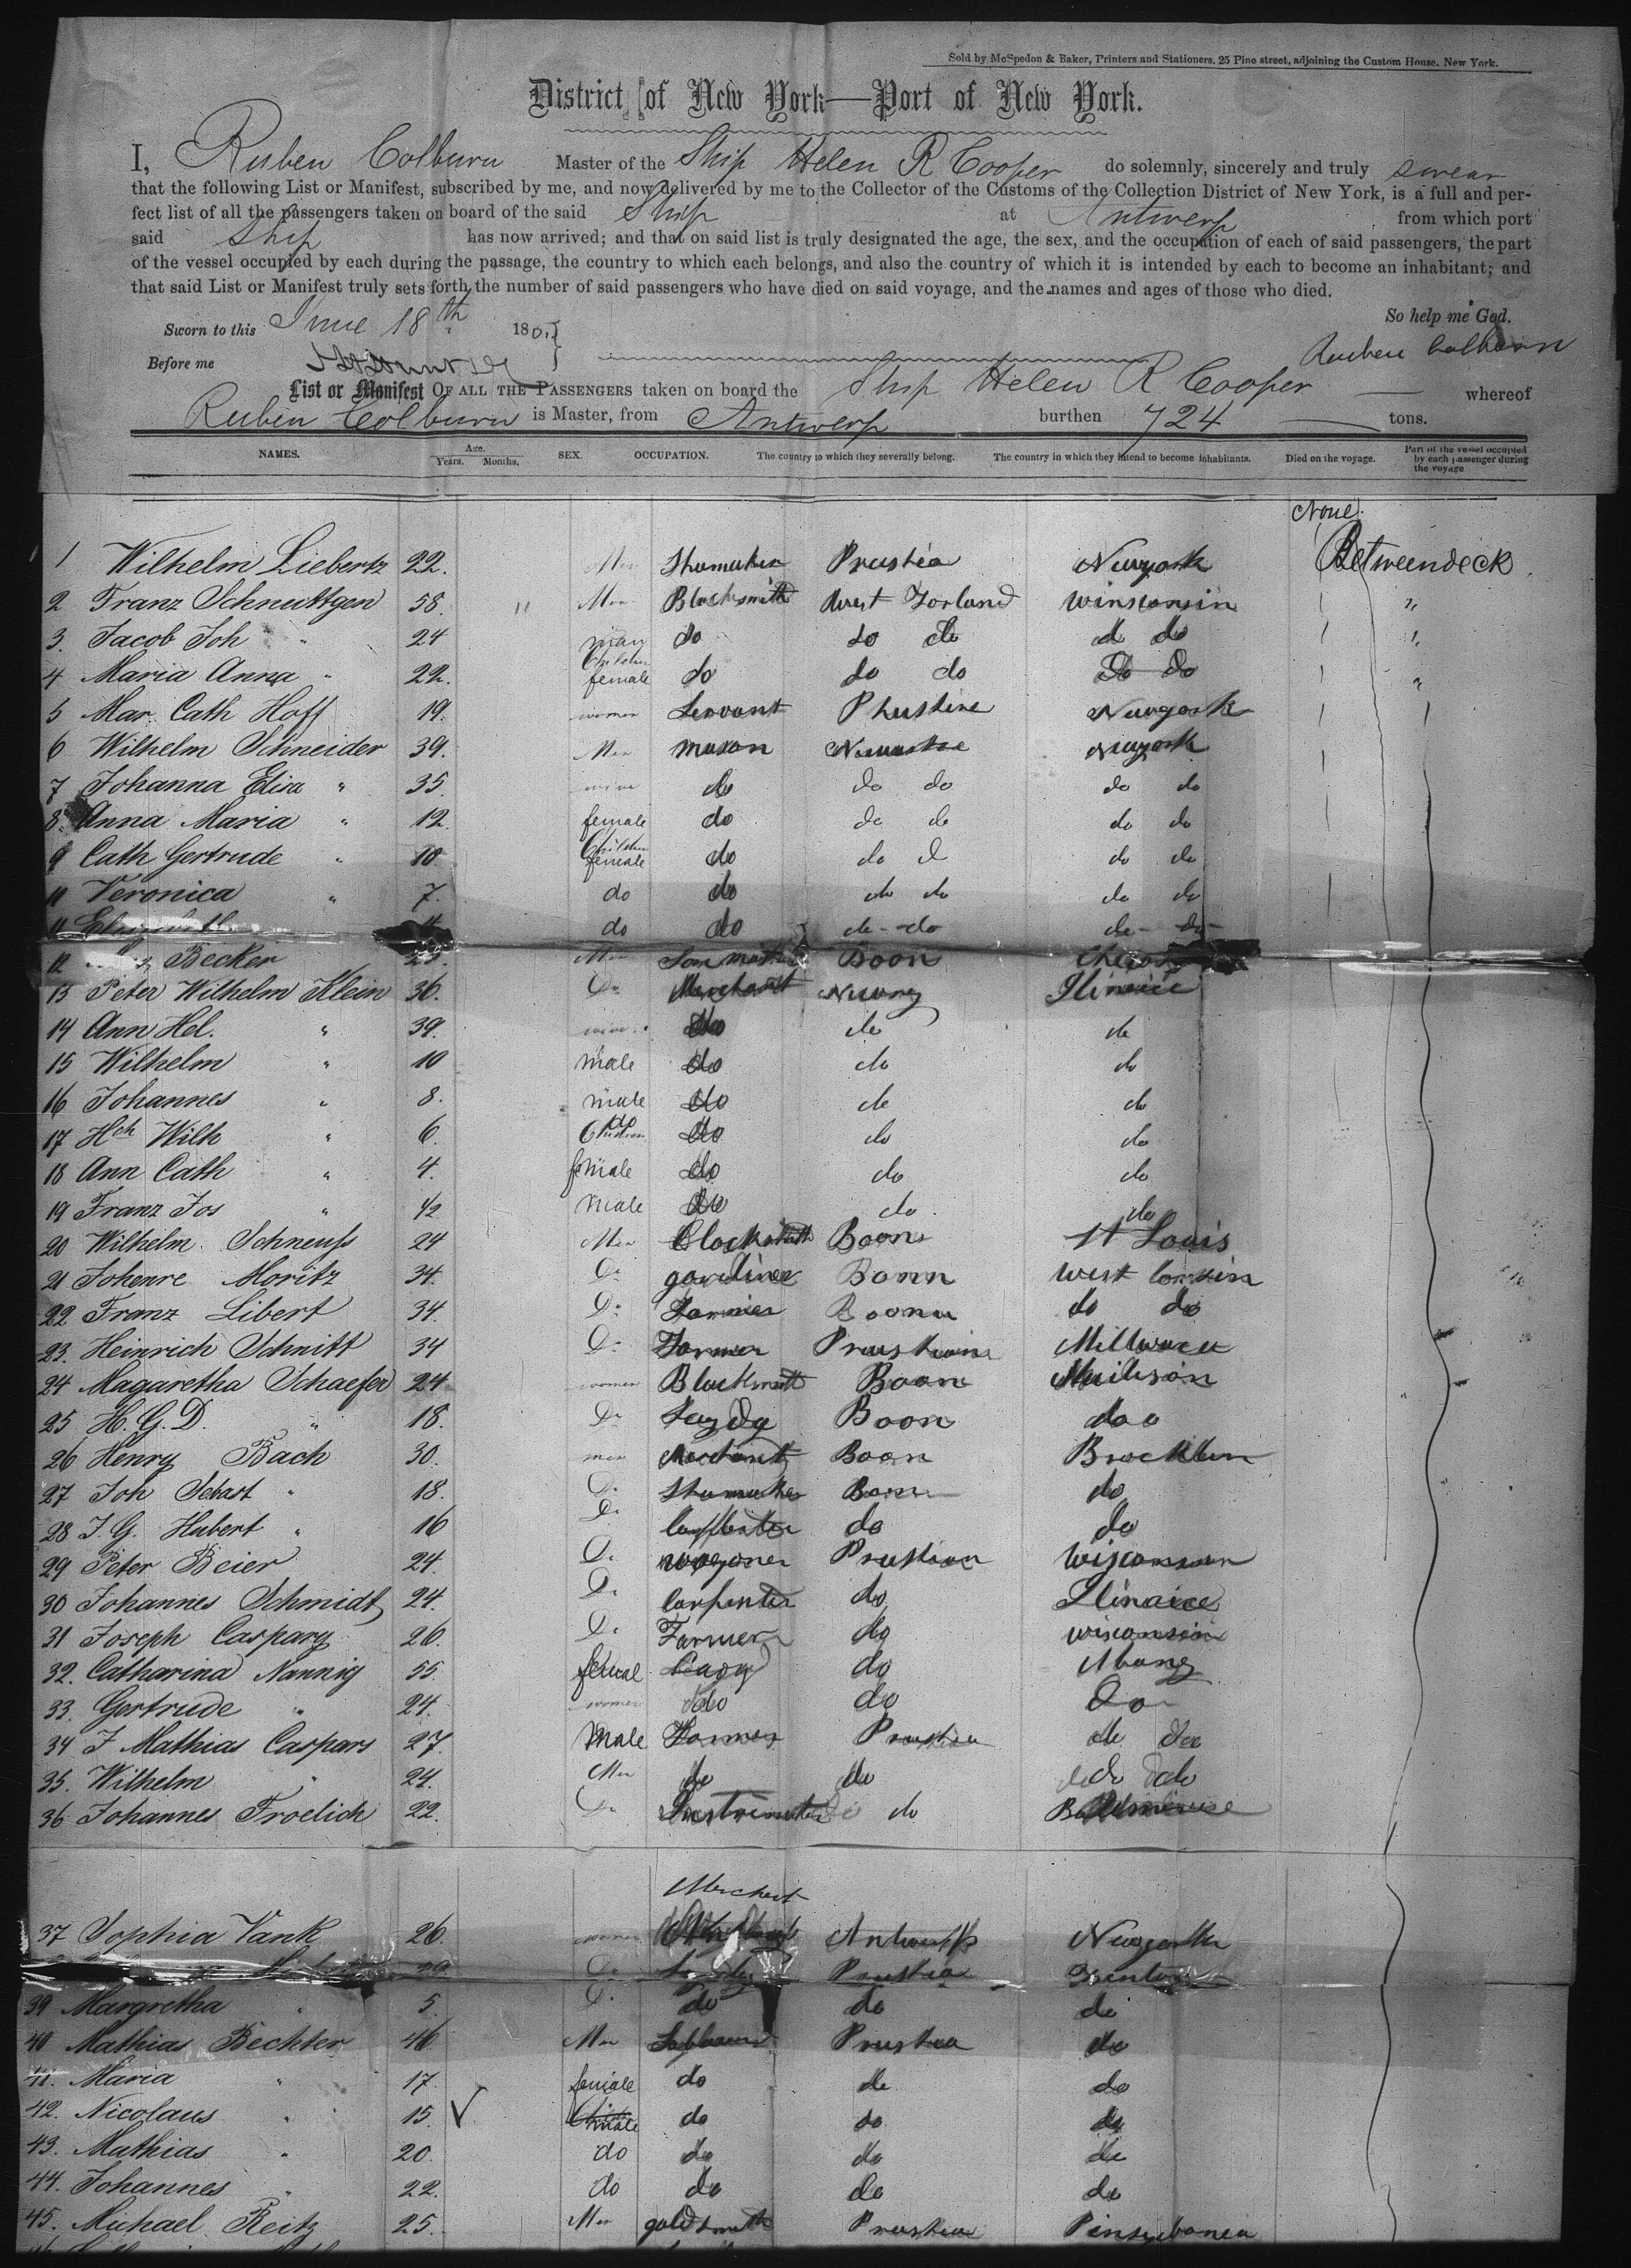 Sold by McSpedon & Baker, Printers and Stationers. 25 Pine street, adjoining the Custom House, New York.
District of New York—Port of New York.
I, Ruben Colburn Master of the Ship Helen R Cooper do solemnly, sincerely and truly swear
that the following List or Manifest, subscribed by me, and now delivered by me to the Collector of the Customs of the Collection District of New York, is a full and per-
fect list of all the passengers taken on board of the said Ship at Antwerp from which port
said Ship has now arrived; and that on said list is truly designated the age, the sex, and the occupation of each of said passengers, the part
of the vessel occupied by each during the passage, the country to which each belongs, and also the country of which it is intended by each to become an inhabitant; and
that said List or Manifest truly sets forth the number of said passengers who have died on said voyage, and the names and ages of those who died.
So help me God.
Sworn to this June 18th 18
Before me Ruben Colburn
List or Manifest OF ALL THE PASSENGERS taken on board the Ship Helen R Cooper whereof
Ruben Colburn is Master, from Antwerp burthen 724 tons.
NAMES. Age. Years. Months. SEX. OCCUPATION. The country to which they severally belong. The country in which they intend to become inhabitants. Died on the voyage. Part of the vessel occupied by each passenger during the voyage
None.
1 Wilhelm Liebertz 22. Men Shumaker Prustia Newyork Betweendeck
2 Franz Schnuttgen 58. " Men Blacksmith Winsconsin "
3. Jacob Joh " 24 man do do do d do "
4 Maria Anna " 22. Children female do do do do do "
5 Mar. Cath Hoff 19. women Servant Newyork
6 Wilhelm Schneider 39. Men mason Newyork
7 Johanna Elisa " 35. do do do do do
8. Anna Maria " 12. female do do de do do
9 Cath Gertrude " 10 Children female do do d do do
11 Veronica " 7. do do do do do do
11 do do de - do de - do
12 Becker Men Boon
13 Peter Wilhelm Klein 36. Do Merchant Ilinaice
14 Ann Hel. " 39. do do de
15 Wilhelm " 10 male do do do
16 Johannes " 8. male do de do
17 Hch Wilh " 6. Children do do do
18 Ann Cath " 4. female do do do
19 Franz Jos " 1/2 male do do do
20 Wilhelm. Schneuss 24 Men Boon St Louis
21 Johenre Moritz 34. Do gardiner Bonn
22 Franz Libert 34. Do Farmer Boonn do do
23. Heinrich Schnitt 34 Do Farmer Prustian
24 Magaretha Schaefer 24 women Blacksmith Boon
25 H. G. D. " 18. Do Boon do
26 Henry Bach 30. men Boon Brocklun
27 Joh Sebast " 18. Do Shumaker do
28 J. G. Hubert " 16 Do do do
29 Peter Beier 24. Do wagoner Prustian Wisconsun
30 Johannes Schmidt 24. Do Carpenter do Ilinaice
31 Joseph Caspary 26. Do Farmer do wisconsin
32. Catharina Nannig 55 femal do Abany
33. Gertrude " 24. women do do Do
34 J Mathias Caspars 27. Male Farmer Prustia do do
35. Wilhelm " 24. Men do do do
36 Johannes Froelich 22. Do do
Merchent
37 Sophia Vank 26. women Antwerp Newyork
Do Prustia
39 Margretha " 5. Do do do do
40 Mathias Bechter 46 Men Prustia do
41. Maria " 17. female do de do
42. Nicolaus " 15. male do do do
43. Mathias " 20. do do do de
44. Johannes " 22. do do do do
45. Michael Reitz 25. Men goldsmith Prustia Pinsylvanea